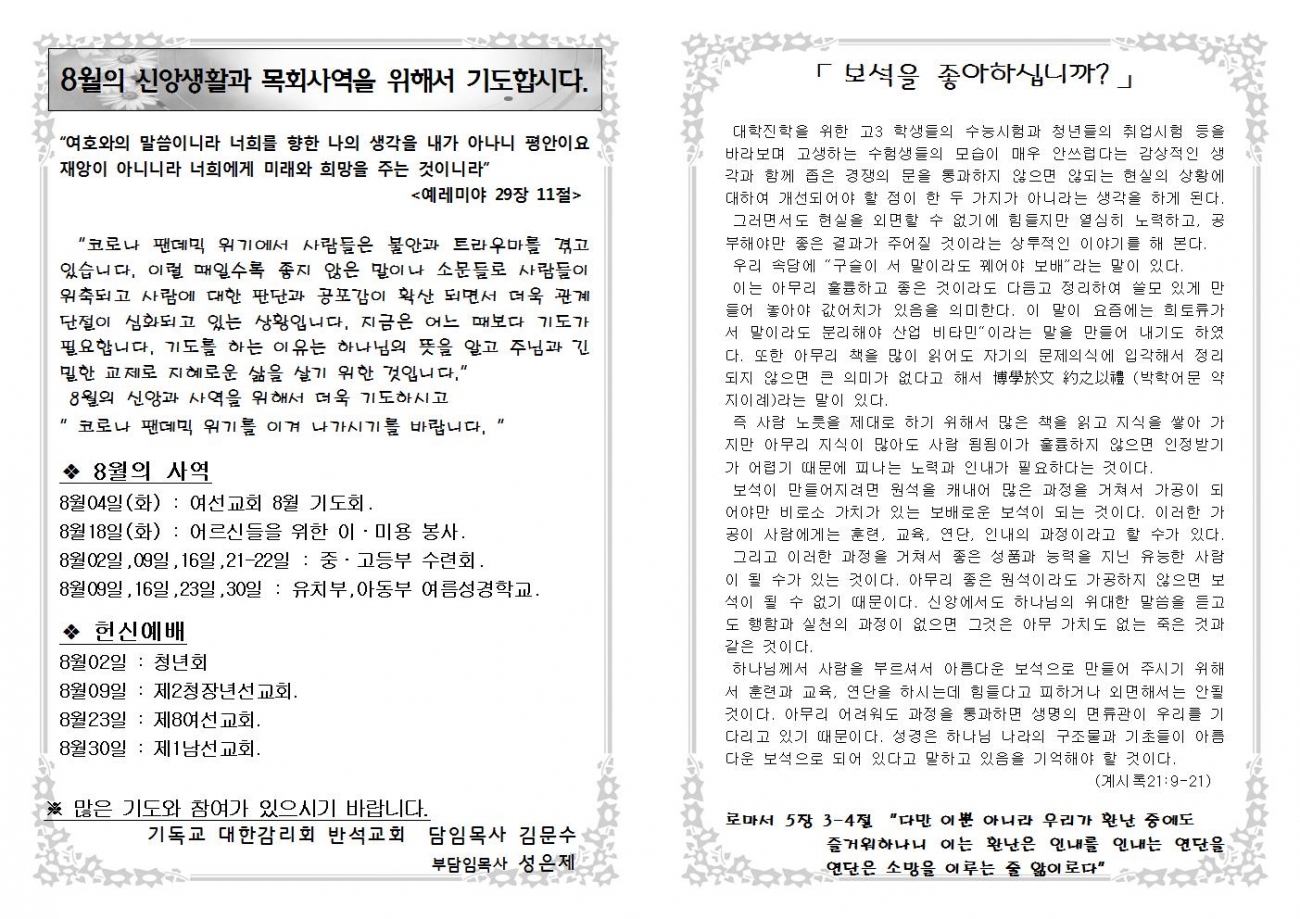 8월의 신앙생활과 목회사역을 위해서 기도합시다.
“여호와의 말씀이니라 너희를 향한 나의 생각을 내가 아나니 평안이요
재앙이 아니니라 너희에게 미래와 희망을 주는 것이니라”
<예레미야 29장 11절>
“코로나 팬데믹 위기에서 사람들은 불안과 트라우마를 겪고
있습니다. 이럴 때일수록 좋지 않은 말이나 소문들로 사람들이
위축되고 사람에 대한 판단과 공포감이 확산 되면서 더욱 관계
단절이 심화되고 있는 상황입니다. 지금은 어느 때보다 기도가
필요합니다. 기도를 하는 이유는 하나님의 뜻을 알고 주님과 긴
밀한 교제로 지혜로운 삶을 살기 위한 것입니다.”
8월의 신앙과 사역을 위해서 더욱 기도하시고
“ 코로나 팬데믹 위기를 이겨 나가시기를 바랍니다. ”
❖ 8월의 사역
8월04일(화) : 여선교회 8월 기도회.
8월18일(화) : 어르신들을 위한 이·미용 봉사.
8월02일,09일,16일,21-22일 : 중·고등부 수련회.
8월09일,16일,23일,30일 : 유치부,아동부 여름성경학교.
❖ 헌신예배
8월02일 : 청년회
8월09일 : 제2청장년선교회.
8월23일 : 제8여선교회.
8월30일 : 제1남선교회.
※ 많은 기도와 참여가 있으시기 바랍니다.
기독교 대한감리회 반석교회 담임목사 김문수
부담임목사 성은제
「 보석을 좋아하십니까? 」
대학진학을 위한 고3 학생들의 수능시험과 청년들의 취업시험 등을
바라보며 고생하는 수험생들의 모습이 매우 안쓰럽다는 감상적인 생
각과 함께 좁은 경쟁의 문을 통과하지 않으면 않되는 현실의 상황에
대하여 개선되어야 할 점이 한 두 가지가 아니라는 생각을 하게 된다.
그러면서도 현실을 외면할 수 없기에 힘들지만 열심히 노력하고, 공
부해야만 좋은 결과가 주어질 것이라는 상투적인 이야기를 해 본다.
우리 속담에 “구슬이 서 말이라도 꿰어야 보배”라는 말이 있다.
이는 아무리 훌륭하고 좋은 것이라도 다듬고 정리하여 쓸모 있게 만
들어 놓아야 값어치가 있음을 의미한다. 이 말이 요즘에는 희토류가
서 말이라도 분리해야 산업 비타민”이라는 말을 만들어 내기도 하였
다. 또한 아무리 책을 많이 읽어도 자기의 문제의식에 입각해서 정리
되지 않으면 큰 의미가 없다고 해서 博學於文 約之以禮 (박학어문 약
지이례)라는 말이 있다.
즉 사람 노릇을 제대로 하기 위해서 많은 책을 읽고 지식을 쌓아 가
지만 아무리 지식이 많아도 사람 됨됨이가 훌륭하지 않으면 인정받기
가 어렵기 때문에 피나는 노력과 인내가 필요하다는 것이다.
보석이 만들어지려면 원석을 캐내어 많은 과정을 거쳐서 가공이 되
어야만 비로소 가치가 있는 보배로운 보석이 되는 것이다. 이러한 가
공이 사람에게는 훈련, 교육, 연단, 인내의 과정이라고 할 수가 있다.
그리고 이러한 과정을 거쳐서 좋은 성품과 능력을 지닌 유능한 사람
이 될 수가 있는 것이다. 아무리 좋은 원석이라도 가공하지 않으면 보
석이 될 수 없기 때문이다. 신앙에서도 하나님의 위대한 말씀을 듣고
도 행함과 실천의 과정이 없으면 그것은 아무 가치도 없는 죽은 것과
같은 것이다.
하나님께서 사람을 부르셔서 아름다운 보석으로 만들어 주시기 위해
서 훈련과 교육, 연단을 하시는데 힘들다고 피하거나 외면해서는 안될
것이다. 아무리 어려워도 과정을 통과하면 생명의 면류관이 우리를 기
다리고 있기 때문이다. 성경은 하나님 나라의 구조물과 기초들이 아름
다운 보석으로 되어 있다고 말하고 있음을 기억해야 할 것이다.
(계시록21:9-21)
로마서 5장 3-4절 “다만 이뿐 아니라 우리가 환난 중에도
즐거워하나니 이는 환난은 인내를 인내는 연단을
연단은 소망을 이루는 줄 앎이로다”